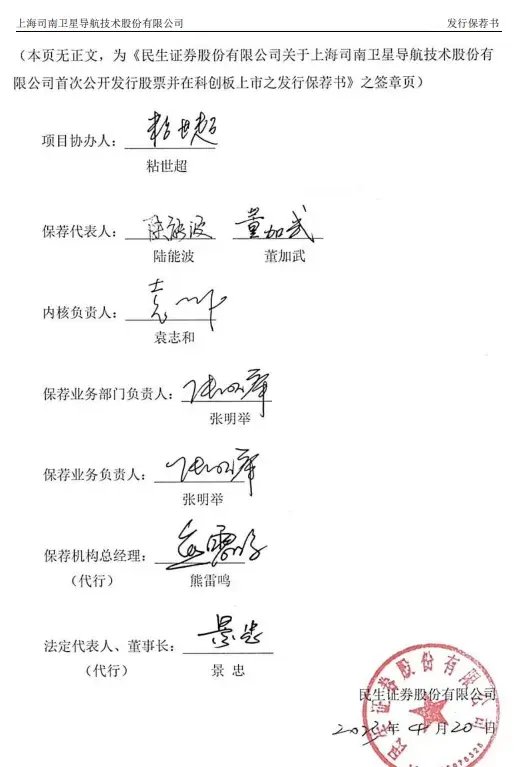 上海司南卫星导航技术股份有限公司 发行保荐书
（本页无正文，为《民生证券股份有限公司关于上海司南卫星导航技术股份有
限公司首次公开发行股票并在科创板上市之发行保荐书》之签章页）
项目协办人： 粘世超
粘世超
保荐代表人： 陆能波 董加武
陆能波 董加武
内核负责人：
袁志和
保荐业务部门负责人： 张明举
张明举
保荐业务负责人： 张明举
张明举
保荐机构总经理： 熊雷鸣
（代行） 熊雷鸣
法定代表人、董事长： 景忠
（代行） 景 忠
民生证券股份有限公司
民生证券股份有限公司
2023年 4月20日